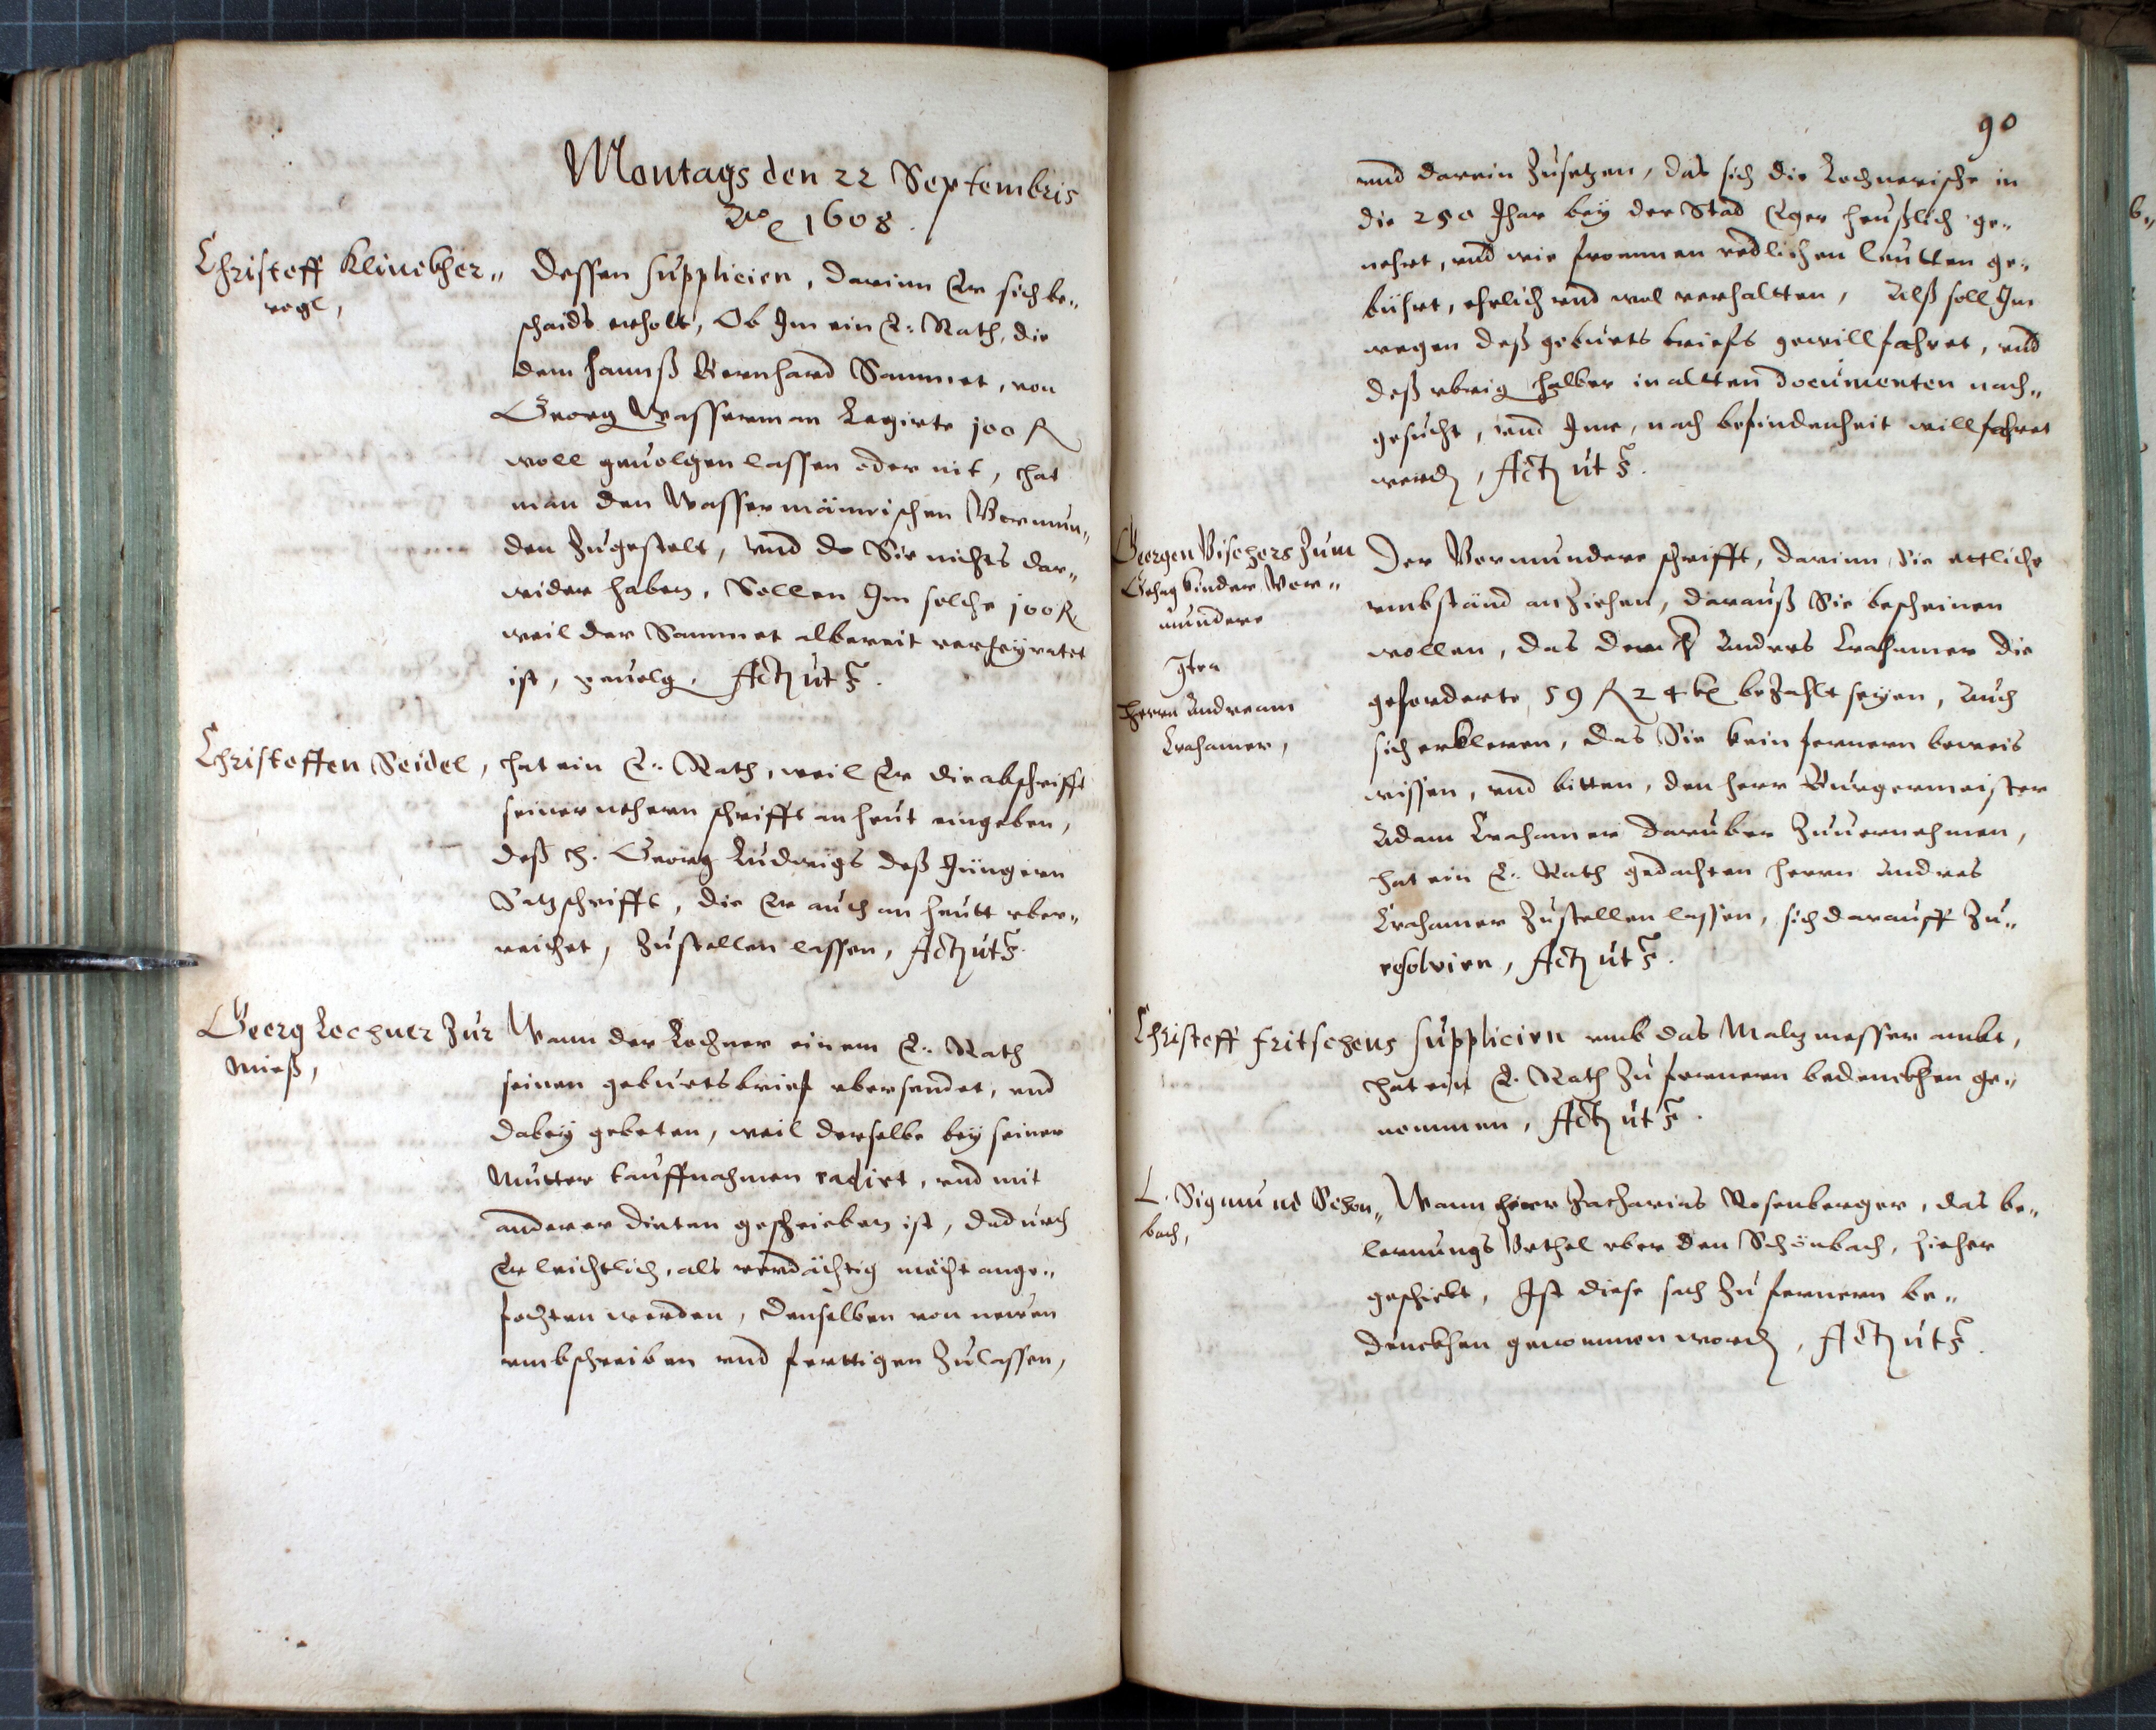 Montags den 22 Septembris
Ao 1608.
Christoff Klinckher„
vogl,
Dessen suppliciren, darinn Er sich be„
schaids erholt, Ob Im ein E. Rath, die
dem Hannß Bernhard Sammet, von
Georg Wasserman Legirte 100 fl
woll geuolgen lassen oder nit, hat
man den Wassermännischen Vormun„
den Zugestelt, vnd do Sie nichts dar„
wider haben, Sollen Im solche 100 fl
weil der Sammet albereit verheyratet
ist, geuolg. Act ut s.
Christoffen Seidel,
hat ein E. Rath, weil Er die abschrifft
seiner nehern schrifft an heut eingeben,
deß H. Georg Ludwigs deß Jüngern
Satzschrifft, die Er auch an heutt vber„
reichet, Zustellen lassen, Act ut s.
Georg Lochner Zur
Mieß,
Wann der Lochner einem E. Rath
seinen geburtsbrief vbersendet, vnd
dabey gebeten, weil derselbe bey seiner
Mutter tauffnahmen radirt, vnd mit
anderer dinten geschrieben ist, dadurch
Er leichtlich, als verdächtig möcht ange„
fochten werden, denselben von newen
vmbschreiben vnd ferttigen Zulassen,
90
vnd darein Zusetzen, das sich die Lochnerische in
die 250 Jhar bey der Stad Eger heußlich ge„
nehrt, vnd wie frommen redlichen leutten ge„
bührt, ehrlich vnd wol verhaltten, Alß soll Im
wegen deß geburts briefs gewillfahret, vnd
deß vbrig halber in altten documenten nach„
gesucht, vnd Ime, nach befindenheit willfahret
werd, Act ut s.
Georgen Vischers Zum
Gehag kinder Vor„
mundere
Iten
Herrn Andream
Crahamer,
Der Vormundere schrifft, darinn sie ettliche
vmbständ anziehen, darauß Sie bescheinen
wollen, das dem H Andres Crahamer die
geforderte 59 fl 24 kr bezahlt seyen, Auch
sich erkleren, das Sie kein fernern beweis
wissen, vnd bitten, den herr Burgermeister
Adam Crahamer darüber Zuuernehmen,
hat ein E. Rath gedachten herrn Andres
Crahamer Zustellen lassen, sich darauff Zu„
resolvirn, Act ut s.
Christoff Fritschens suppliciren vmb das Maltzmesser ambt,
hat ein E. Rath Zu fernern bedenckhen ge„
nommen, Act ut s.
L. Sigmund Schon„
bach,
Wann herr Zacharias Rosenberger, das be„
lernungs Vrthel vber den Schönbach, hieher
geschickt, Ist diese sach Zu fernern be„
denckhen genommen word, Act ut s.